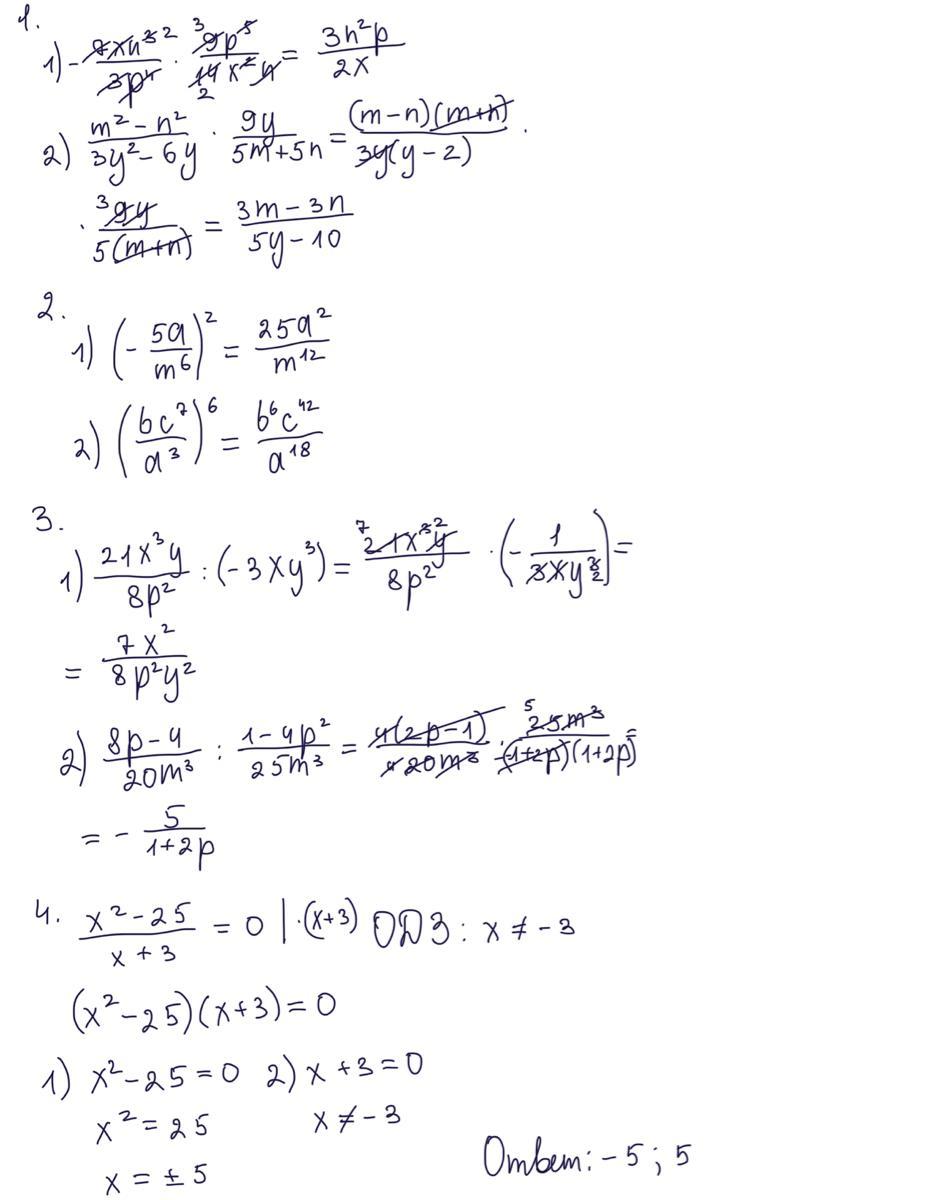 1.
1) - 7xn³²/3p⁴ · ³9p⁵/₂14x²n = 3n²p/2x
2) (m² - n²)/(3y² - 6y) · 9y/(5m+5n) = (m-n)(m+n)/3y(y-2) ·
· ³9y/5(m+n) = (3m-3n)/(5y-10)
2.
1) (- 5a/m⁶)² = 25a²/m¹²
2) (bc⁷/a³)⁶ = b⁶c⁴²/a¹⁸
3.
1) 21x³y/8p² : (-3xy³) = ⁷21x³²y/8p² · (- 1/3xy³₂) =
= 7x²/8p²y²
2) (8p-4)/20m³ : (1-4p²)/25m³ = 4(2p-1)/₄20m³ · ⁵25m³/(-1+2p)(1+2p) =
= - 5/(1+2p)
4. (x²-25)/(x+3) = 0 | ·(x+3) ОДЗ: x ≠ -3
(x²-25)(x+3) = 0
1) x²-25=0 2) x+3=0
x² = 25 x ≠ -3
x = ± 5
Ответ: -5; 5